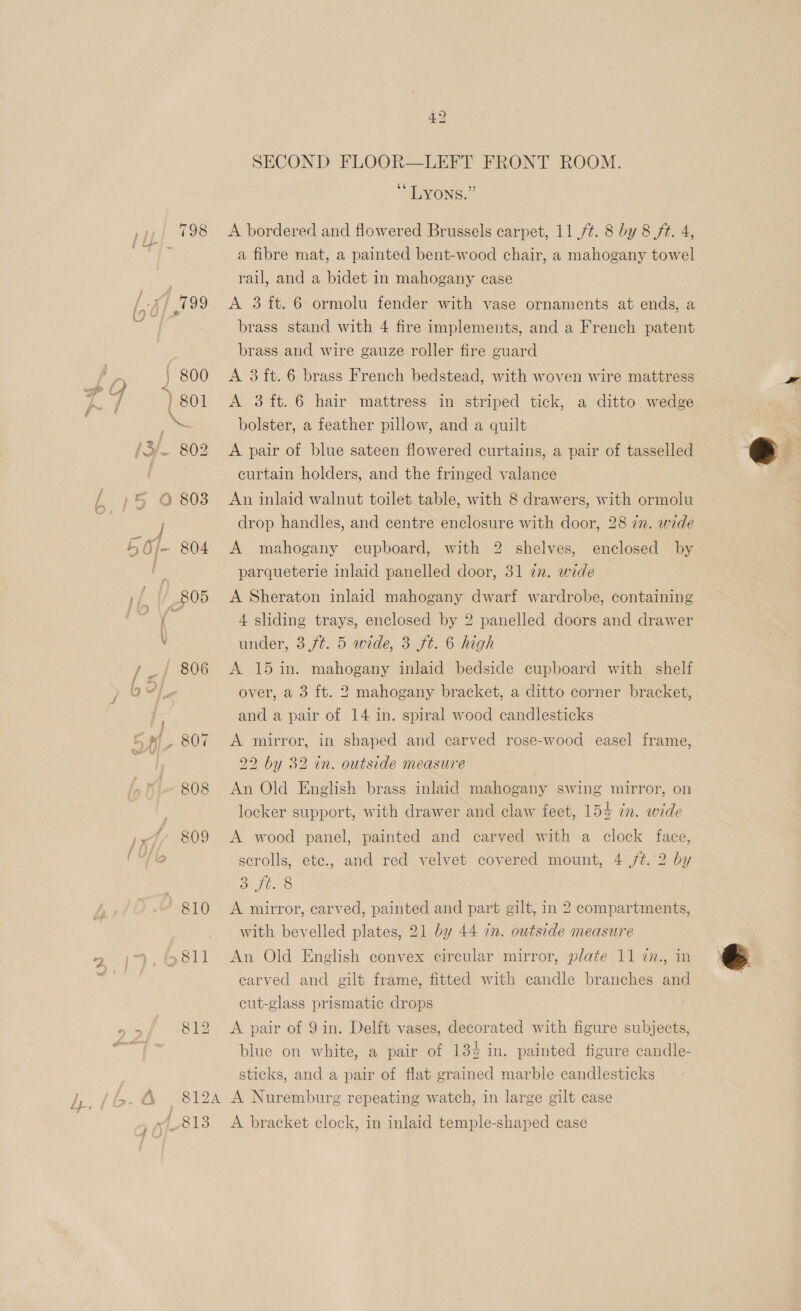 42
SECOND FLOOR—LEFT FRONT ROOM.
“Lyons.”
798 A bordered and flowered Brussels carpet, 11 ft. 8 by 8 ft. 4,
a fibre mat, a painted bent-wood chair, a mahogany towel
rail, and a bidet in mahogany case
799 A 3 ft. 6 ormolu fender with vase ornaments at ends, a
brass stand with 4 fire implements, and a French patent
brass and wire gauze roller fire guard
800 A 3 ft. 6 brass French bedstead, with woven wire mattress
801 A 3 ft. 6 hair mattress in striped tick, a ditto wedge
bolster, a feather pillow, and a quilt
13/- 802 A pair of blue sateen flowered curtains, a pair of tasselled
curtain holders, and the fringed valance
803 An inlaid walnut toilet table, with 8 drawers, with ormolu
drop handles, and centre enclosure with door, 28 in. wide
50/- 804 A mahogany cupboard, with 2 shelves, enclosed by
parqueterie inlaid panelled door, 31 in. wide
805 A Sheraton inlaid mahogany dwarf wardrobe, containing
4 sliding trays, enclosed by 2 panelled doors and drawer
under, 3 ft. 5 wide, 3 ft. 6 high
806 A 15 in. mahogany inlaid bedside cupboard with shelf
over, a 3 ft. 2 mahogany bracket, a ditto corner bracket,
and a pair of 14 in. spiral wood candlesticks
807 A mirror, in shaped and carved rose-wood easel frame,
22 by 32 in. outside measure
808 An Old English brass inlaid mahogany swing mirror, on
locker support, with drawer and claw feet, 15½ in. wide
809 A wood panel, painted and carved with a clock face,
scrolls, etc., and red velvet covered mount, 4 ft. 2 by
3 ft. 8
810 A mirror, carved, painted and part gilt, in 2 compartments,
with bevelled plates, 21 by 44 in. outside measure
811 An Old English convex circular mirror, plate 11 in., in
carved and gilt frame, fitted with candle branches and
cut-glass prismatic drops
812 A pair of 9 in. Delft vases, decorated with figure subjects,
blue on white, a pair of 13½ in. painted figure candle-
sticks, and a pair of flat grained marble candlesticks
812A A Nuremburg repeating watch, in large gilt case
813 A bracket clock, in inlaid temple-shaped case